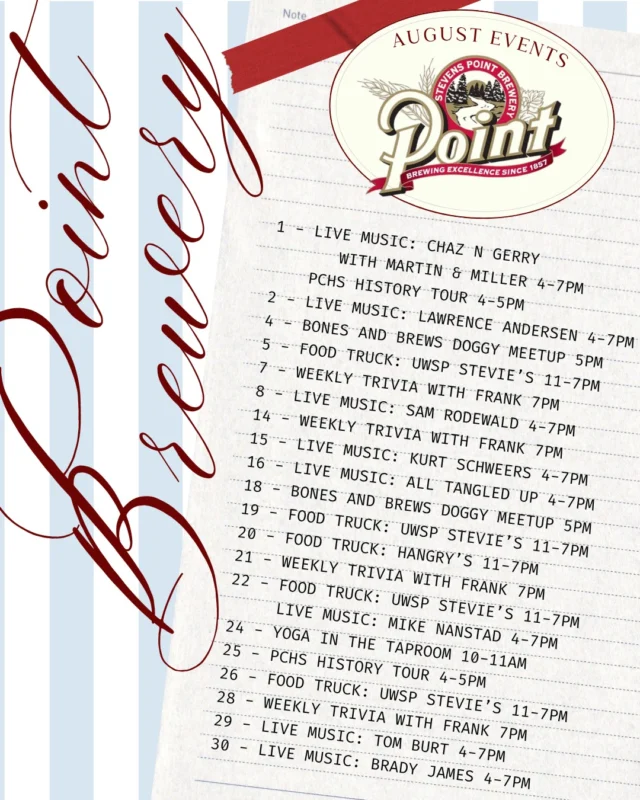 Point
Brewery
Note
AUGUST EVENTS
STEVENS POINT BREWERY
Point
BREWING EXCELLENCE SINCE 1857
1 - LIVE MUSIC: CHAZ N GERRY
WITH MARTIN & MILLER 4-7PM
PCHS HISTORY TOUR 4-5PM
2 - LIVE MUSIC: LAWRENCE ANDERSEN 4-7PM
4 - BONES AND BREWS DOGGY MEETUP 5PM
5 - FOOD TRUCK: UWSP STEVIE'S 11-7PM
7 - WEEKLY TRIVIA WITH FRANK 7PM
8 - LIVE MUSIC: SAM RODEWALD 4-7PM
14 - WEEKLY TRIVIA WITH FRANK 7PM
15 - LIVE MUSIC: KURT SCHWEERS 4-7PM
16 - LIVE MUSIC: ALL TANGLED UP 4-7PM
18 - BONES AND BREWS DOGGY MEETUP 5PM
19 - FOOD TRUCK: UWSP STEVIE'S 11-7PM
20 - FOOD TRUCK: HANGRY'S 11-7PM
21 - WEEKLY TRIVIA WITH FRANK 7PM
22 - FOOD TRUCK: UWSP STEVIE'S 11-7PM
LIVE MUSIC: MIKE NANSTAD 4-7PM
24 - YOGA IN THE TAPROOM 10-11AM
25 - PCHS HISTORY TOUR 4-5PM
26 - FOOD TRUCK: UWSP STEVIE'S 11-7PM
28 - WEEKLY TRIVIA WITH FRANK 7PM
29 - LIVE MUSIC: TOM BURT 4-7PM
30 - LIVE MUSIC: BRADY JAMES 4-7PM